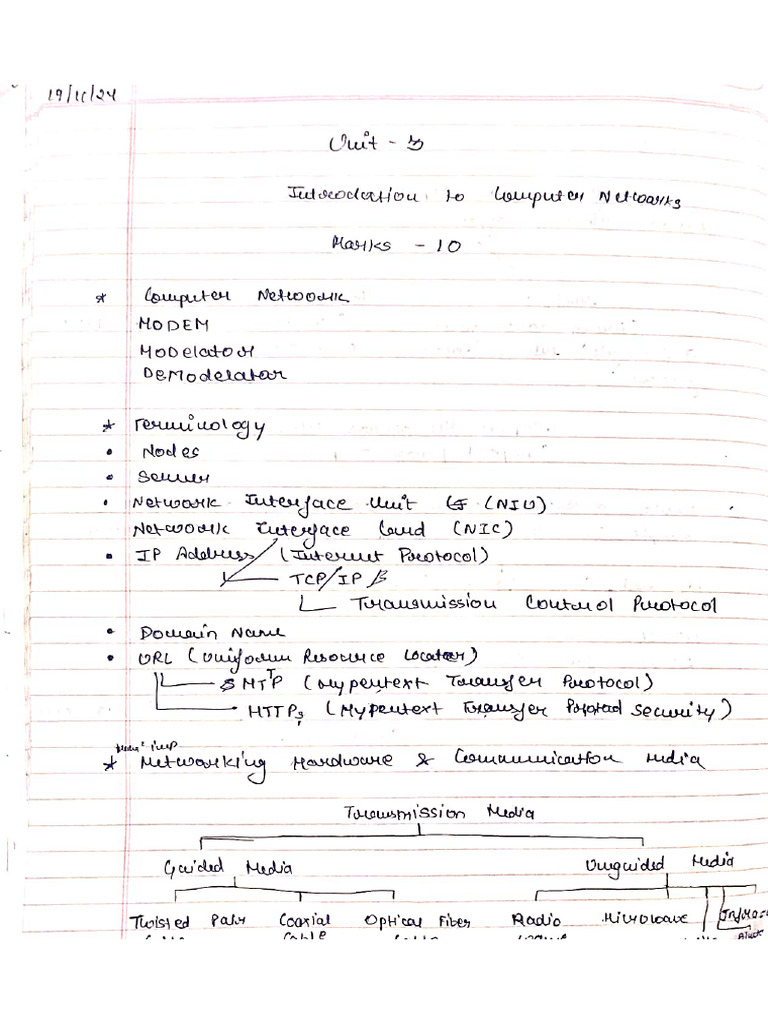 19/11/24
Unit - 5
Introduction to Computer Networks
Marks - 10
* Computer Network
MODEM
Modelator
DEModelator
* Terminology
• Nodes
• Server
• Network Interface Unit (NIU)
Network Interface Card (NIC)
• IP Address (Internet Protocol)
TCP/IP
Transmission Control Protocol
• Domain Name
• URL (Uniform Resource Locater)
HTTP (Hypertext Transfer Protocol)
HTTPs (Hypertext Transfer Protocol security)
imp
* Networking Hardware & Communication Media
Transmission Media
Guided Media Unguided Media
Twisted Pair Coaxial Optical Fiber Radio Microwave
Cable